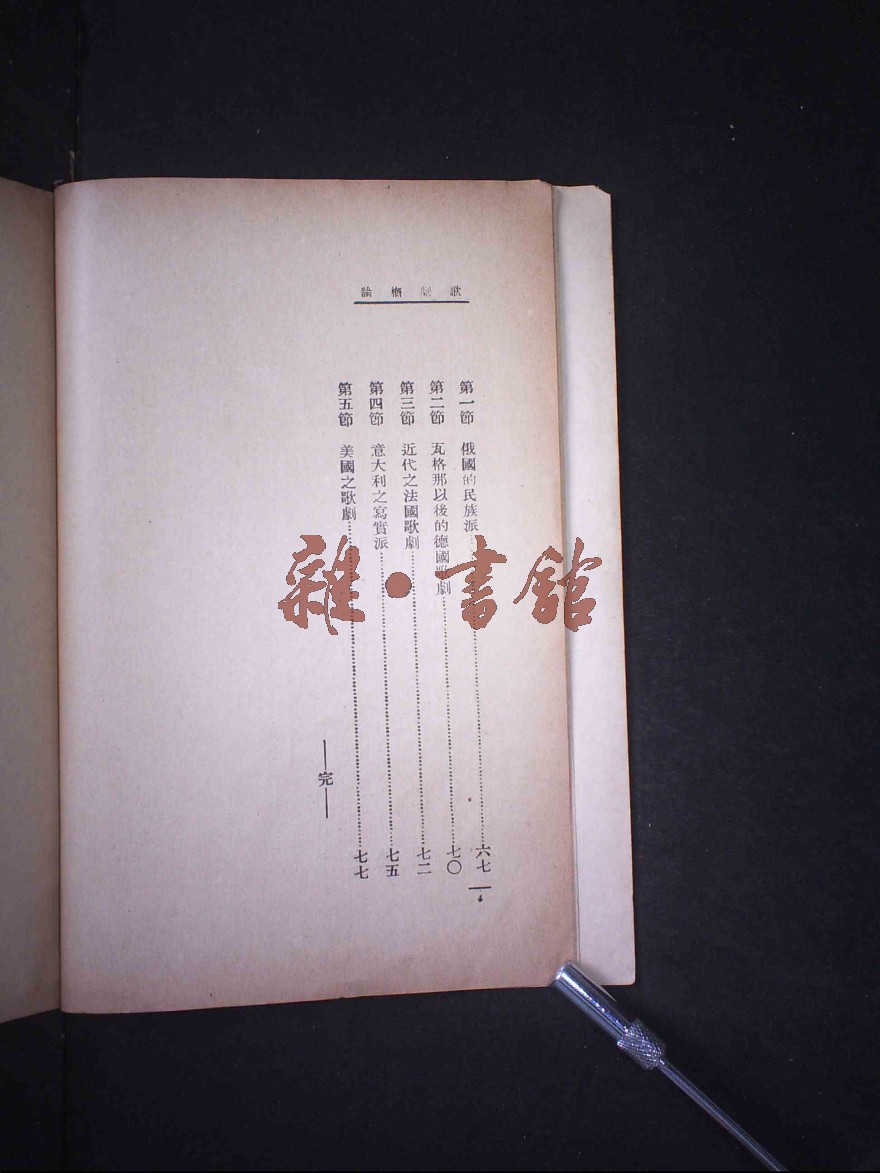 歌劇概論
第一節 俄國的民族派……六七
第二節 瓦格那以後的德國歌劇……七〇
第三節 近代之法國歌劇……七二
第四節 意大利之寫實派……七五
第五節 美國之歌劇……七七
——完——
雜・書館